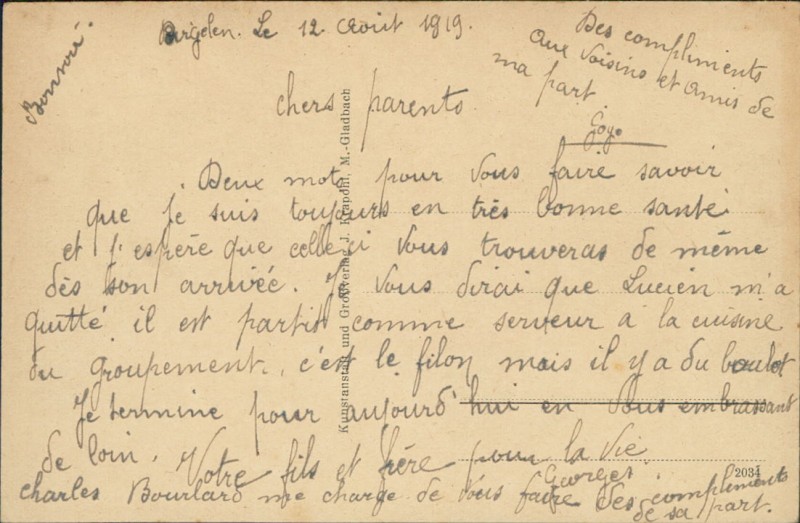 Bonsoir.
Birgelen. Le 12 Août 1919.
Des compliments
aux voisins et amis de
ma part.
Gogo
chers parents
Deux mots pour vous faire savoir
que je suis toujours en très bonne santé
et j'espère que celle ci vous trouveras de même
dès son arrivée. Je vous dirai que Lucien m'a
quitté il est parti comme serveur à la cuisine
du groupement, c'est le filon mais il y a du boulot
Je termine pour aujourd'hui en vous embrassant
de loin. Votre fils et frère pour la vie.
Georges
charles Bourlard me charge de vous faire des compliments
de sa part.
Kunstanstalt und Großverlag J. Krapohl, M.-Gladbach
2034